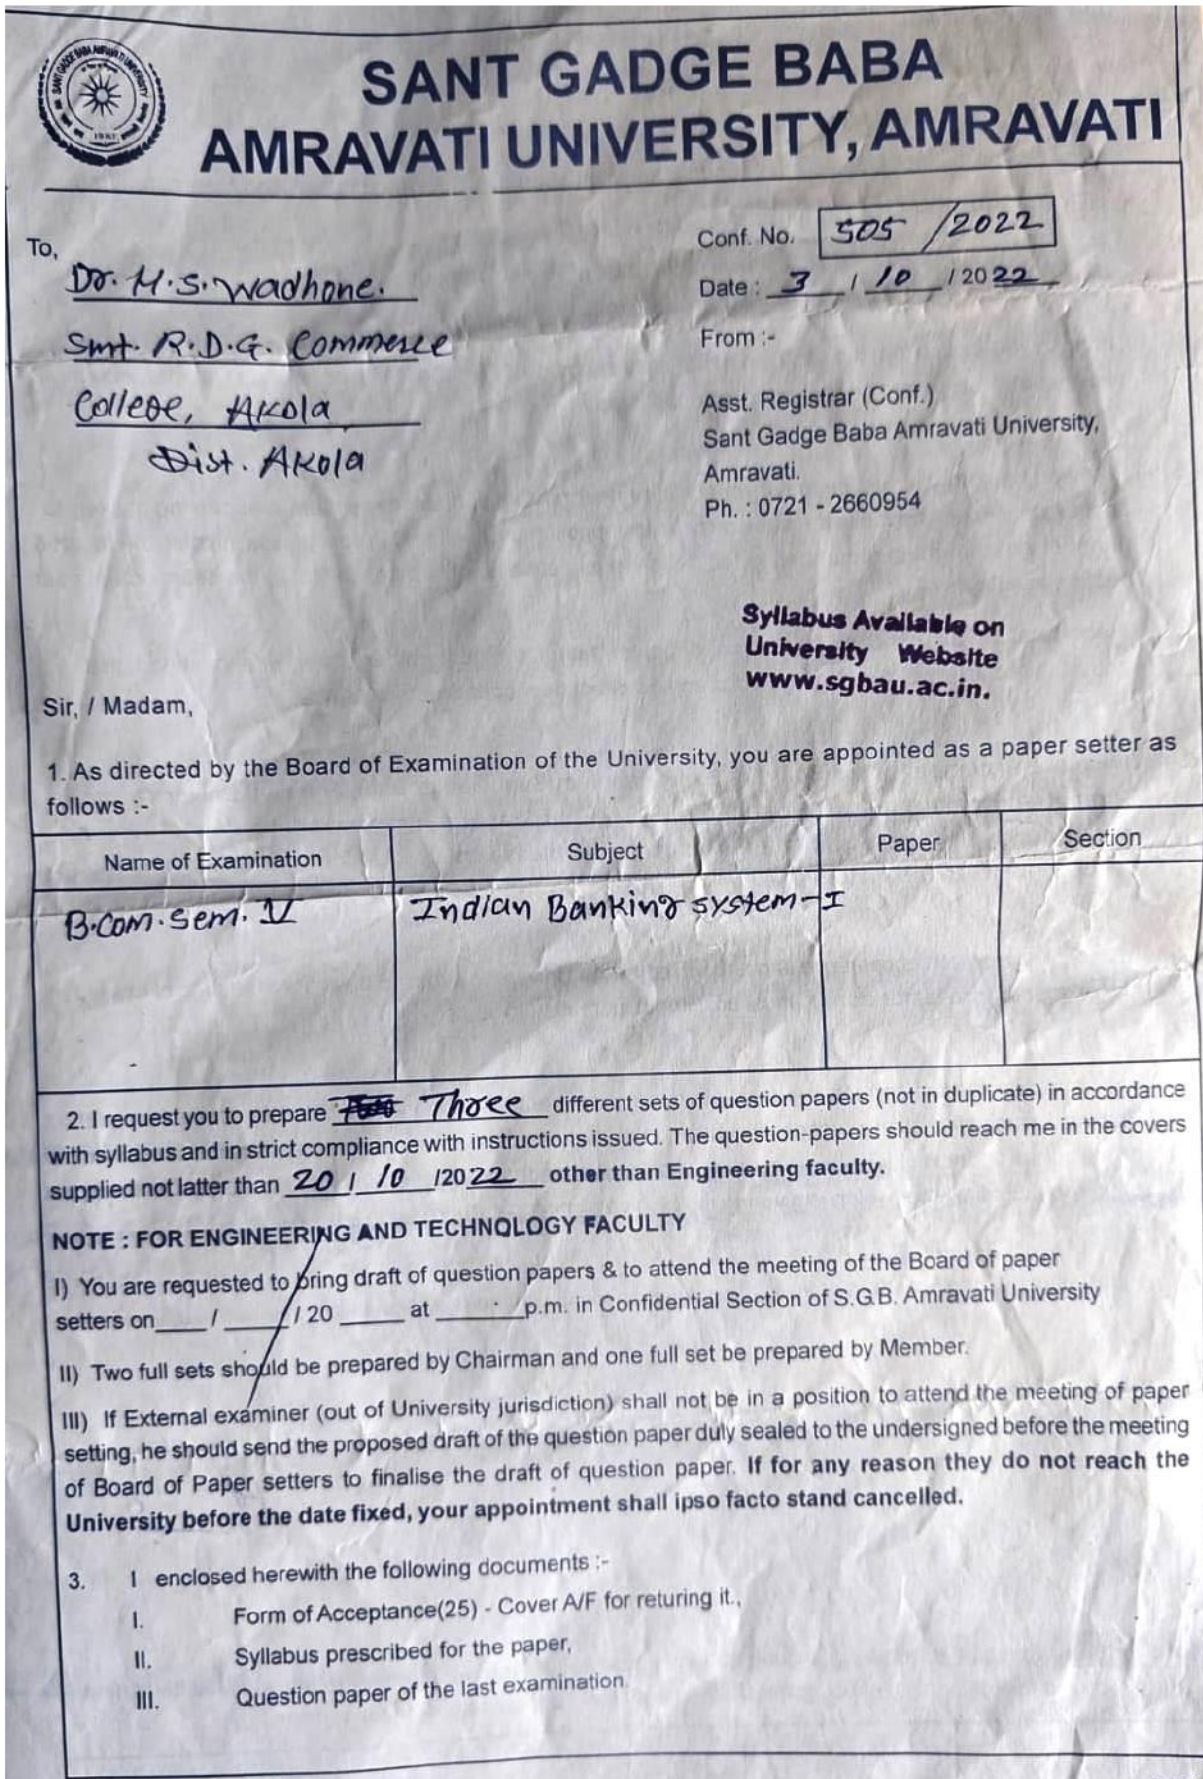 SANT GADGE BABA
AMRAVATI UNIVERSITY, AMRAVATI
Conf. No. 505 /2022
To,
Dr. M.S. Wadhone.
Date : 3 / 10 / 2022
Smt. R.D.G. Commerce
From :-
College, Akola
Asst. Registrar (Conf.)
Sant Gadge Baba Amravati University,
Dist. Akola
Amravati.
Ph. : 0721 - 2660954
Syllabus Available on
University Website
www.sgbau.ac.in.
Sir, / Madam,
1. As directed by the Board of Examination of the University, you are appointed as a paper setter as
follows :-
Name of Examination Subject Paper Section
B.Com. Sem. V Indian Banking System-I
2. I request you to prepare Three different sets of question papers (not in duplicate) in accordance
with syllabus and in strict compliance with instructions issued. The question-papers should reach me in the covers
supplied not latter than 20 / 10 /2022 other than Engineering faculty.
NOTE : FOR ENGINEERING AND TECHNOLOGY FACULTY
I) You are requested to bring draft of question papers & to attend the meeting of the Board of paper
setters on____/_____/ 20 _____ at _______p.m. in Confidential Section of S.G.B. Amravati University
II) Two full sets should be prepared by Chairman and one full set be prepared by Member.
III) If External examiner (out of University jurisdiction) shall not be in a position to attend the meeting of paper
setting, he should send the proposed draft of the question paper duly sealed to the undersigned before the meeting
of Board of Paper setters to finalise the draft of question paper. If for any reason they do not reach the
University before the date fixed, your appointment shall ipso facto stand cancelled.
3. I enclosed herewith the following documents :-
I. Form of Acceptance(25) - Cover A/F for returing it.,
II. Syllabus prescribed for the paper,
III. Question paper of the last examination.